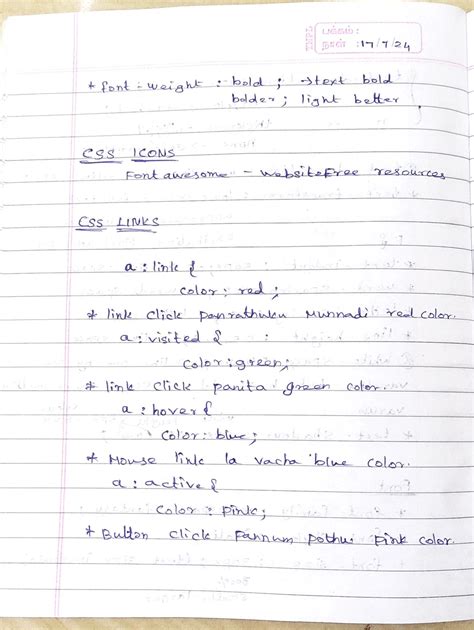 பக்கம் :
நாள் : 17/7/24
* font : weight : bold ; → text bold
bolder ; light better
CSS ICONS
Font awesome - website Free resources
CSS LINKS
a : link {
color : red ;
* link click panrathuku munnadi red color.
a : visited {
color : green;
* link click panita green color.
a : hover {
color : blue;
* Mouse link la vacha blue color.
a : active {
color : pink;
* Button click Pannum pothu Pink color.